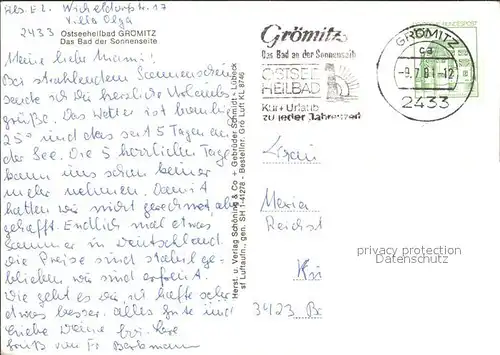 Abs. E.L. Wicheldorfstr. 17
Villa Olga
2433 Ostseeheilbad GRÖMITZ
Das Bad der Sonnenseite
Meine liebe Mami!
Bei strahlendem Sonnenschein
sende ich Dir herzliche Urlaubs-
grüße. Das Wetter ist
25° und das seit 5 Tagen an
der See. Die 5 herrlichen Tage
kann uns schon keiner
mehr nehmen. Damit
hatten wir nicht gerechnet,
gehofft. Endlich mal etwas
Sommer in Deutschland.
Die Preise sind stabil ge-
blieben, wir sind erfreut.
Wie geht es Dir, ich hoffe sehr
etwas besser. Alles Gute und
liebe
Gruß von Fr.
Herst. u. Verlag Schöning & Co + Gebrüder Schmidt - Lübeck
sf Luftaufn., gen. SH 1-41278 - Bestellnr. Grö Luft KL 8746
Grömitz
Das Bad an der Sonnenseite
OSTSEE
HEILBAD
Kur + Urlaub
zu jeder Jahreszeit
GRÖMITZ
ca
-9.7.81-12
2433
BUNDESPOST
Maria
Reichst
3423 Ba
privacy protection
Datenschutz